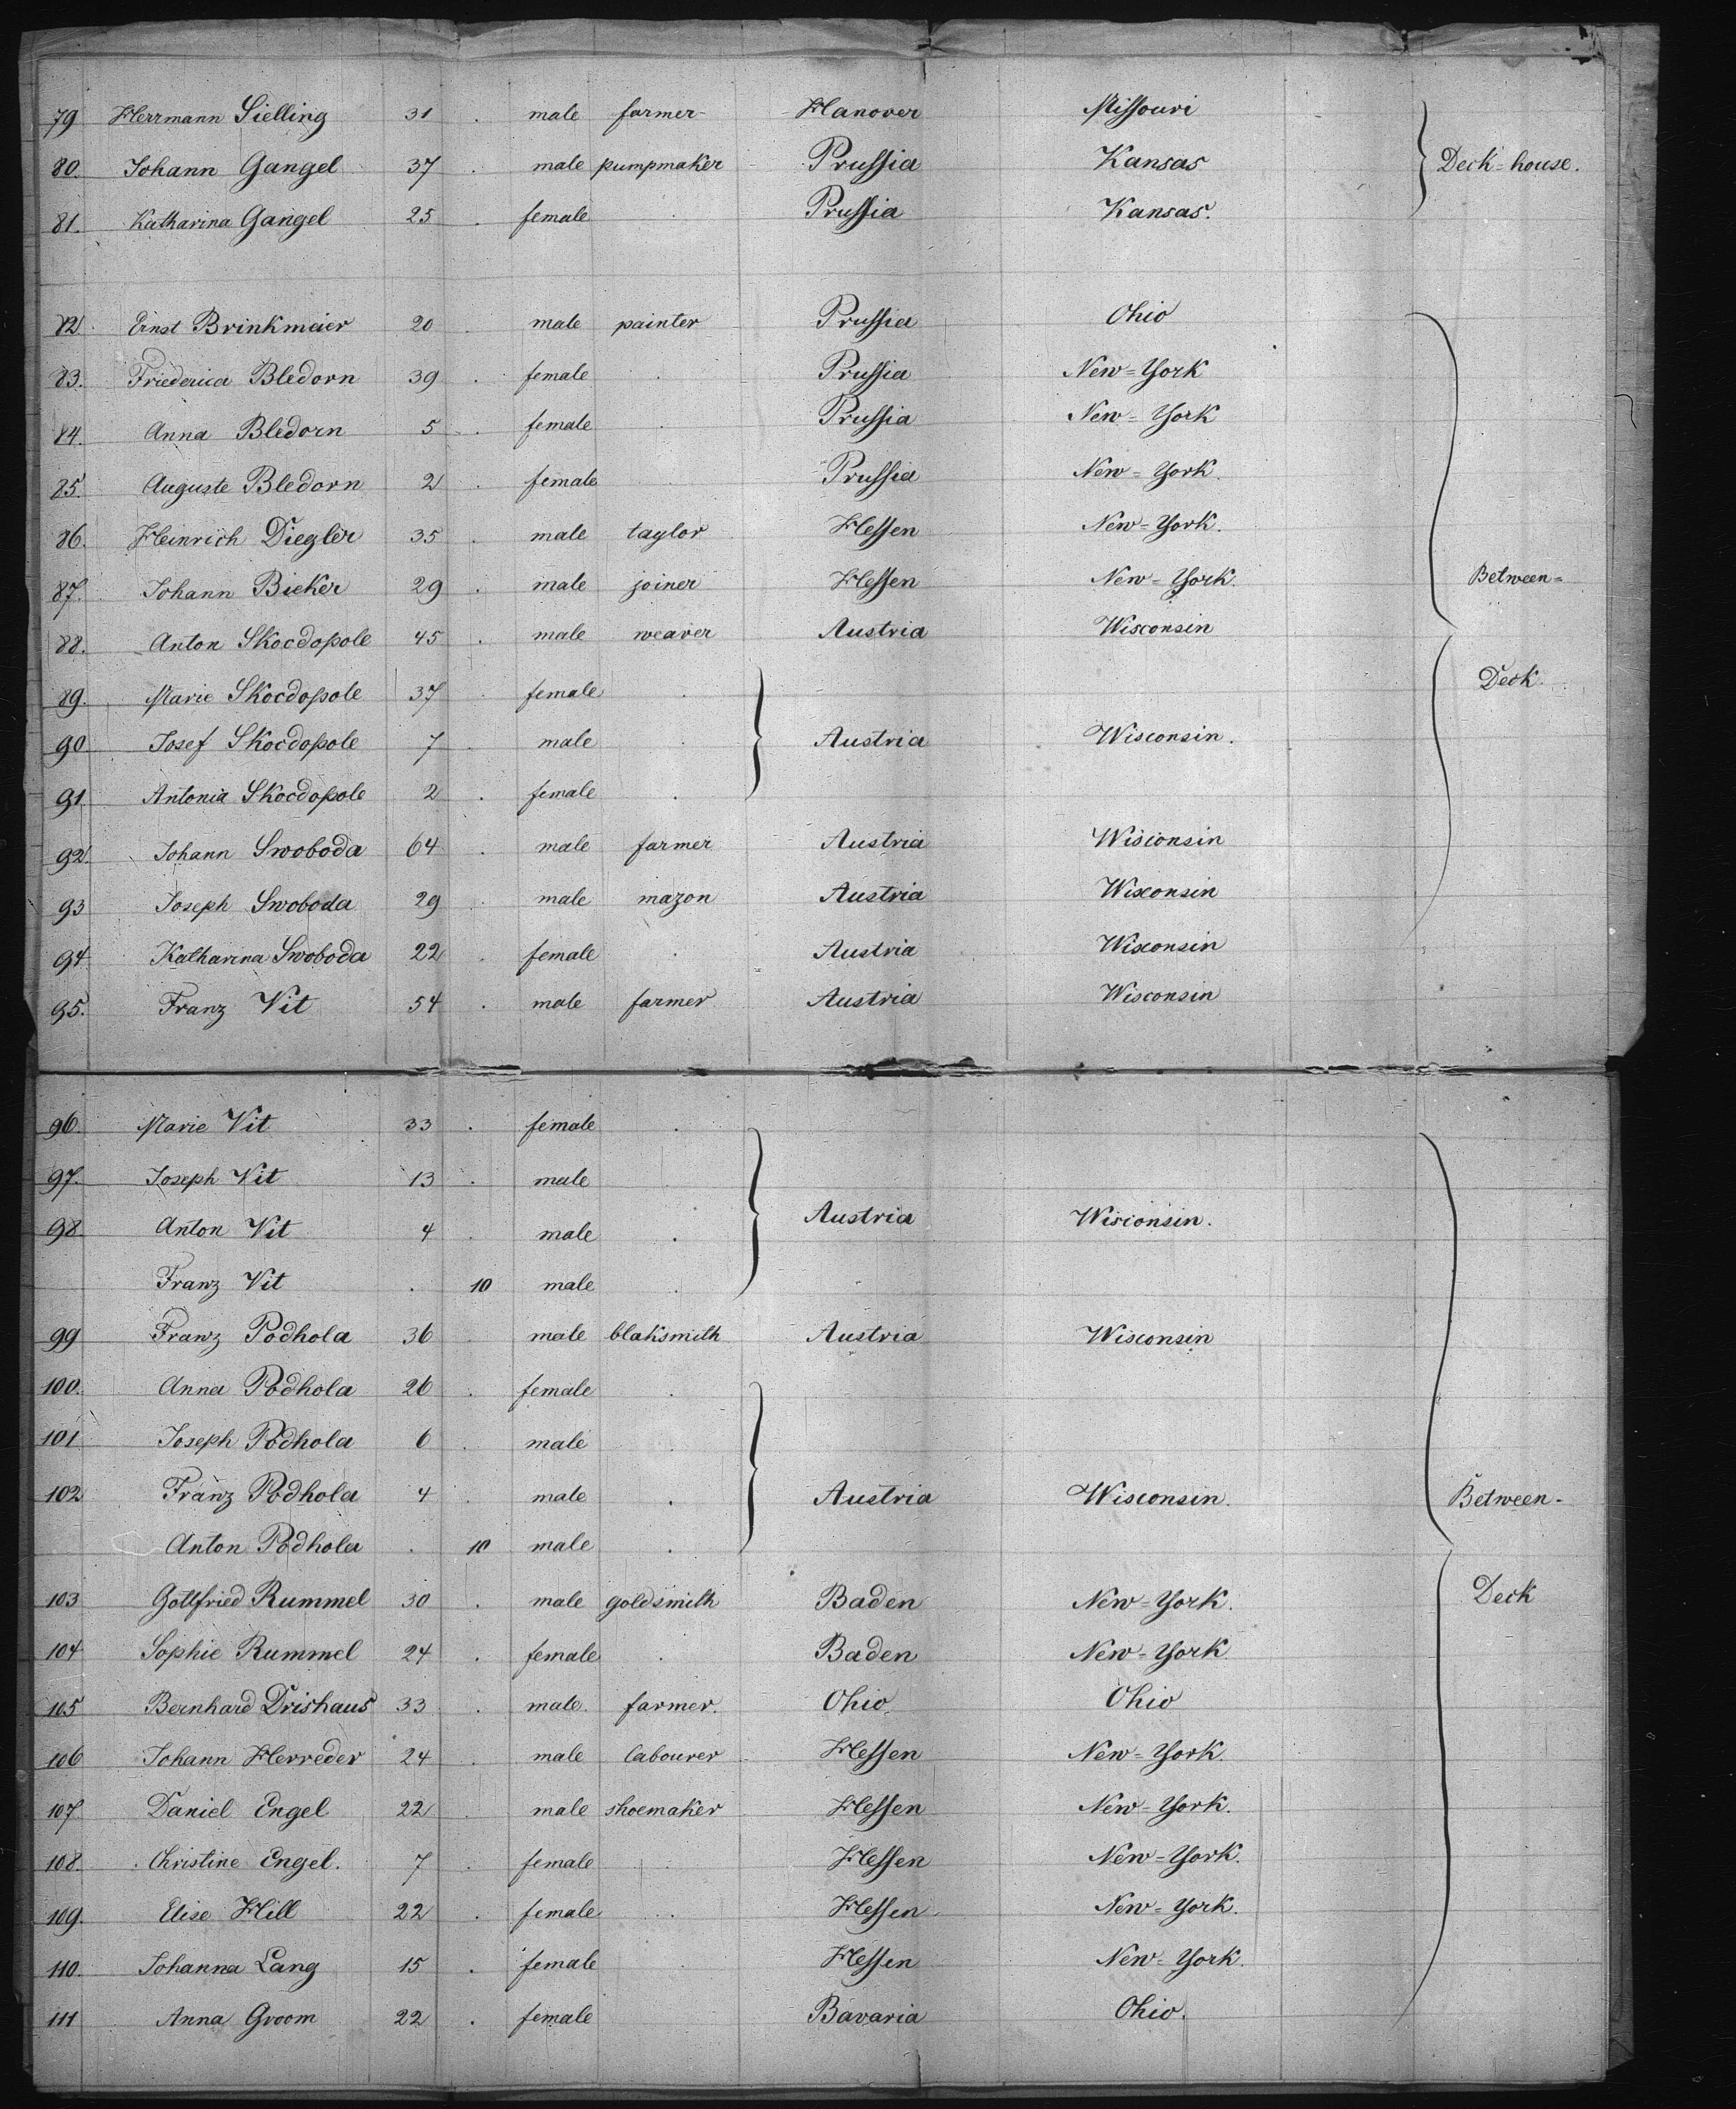 79 Herrmann Sielling 31 . male farmer Hanover Missouri
80. Johann Gangel 37 . male pumpmaker Prussia Kansas Deck=house.
81. Katharina Gangel 25 . female . Prussia Kansas.
82. Ernst Brinkmeier 20 . male painter Prussia Ohio
83. Friederica Bledorn 39 . female . Prussia New=York
84. Anna Bledorn 5 . female . Prussia New=York
85. Auguste Bledorn 2 female Prussia New=York.
86. Heinrich Diegler 35 . male taylor Hessen New=York.
87. Johann Bieker 29 . male joiner Hessen New=York. Between=
88. Anton Skocdopole 45 . male weaver Austria Wisconsin
89. Marie Skocdopole 37 . female . Deck.
90 Josef Skocdopole 7 . male . Austria Wisconsin.
91. Antonia Skocdopole 2 . female .
92. Johann Swoboda 64 . male farmer Austria Wisconsin
93 Joseph Swoboda 29 male mazon Austria Wisconsin
94. Katharina Swoboda 22 . female . Austria Wisconsin
95. Franz Vit 54 . male farmer Austria Wisconsin
96. Marie Vit 33 . female .
97. Joseph Vit 13 . male
98. Anton Vit 4 . male . Austria Wisconsin.
Franz Vit . 10 male .
99 Franz Podhola 36 male blaksmith Austria Wisconsin
100. Anna Podhola 26 . female .
101 Joseph Podhola 6 . male
102 Franz Podhola 4 . male . Austria Wisconsin. Between-
Anton Podhola . 10 male .
103 Gottfried Rummel 30 . male goldsmith Baden New=York. Deck
104 Sophie Rummel 24 . female . Baden New=York.
105 Bernhard Drishaus 33 . male. farmer. Ohio. Ohio
106 Johann Herreder 24 . male labourer Hessen New=York.
107 Daniel Engel 22 . male shoemaker Hessen New=York.
108. Christine Engel. 7 . female Hessen New=York.
109. Elise Hill 22 . female . Hessen New=York.
110. Johanna Lang 15 . female . Hessen New=York.
111 Anna Groom 22 . female Bavaria Ohio.